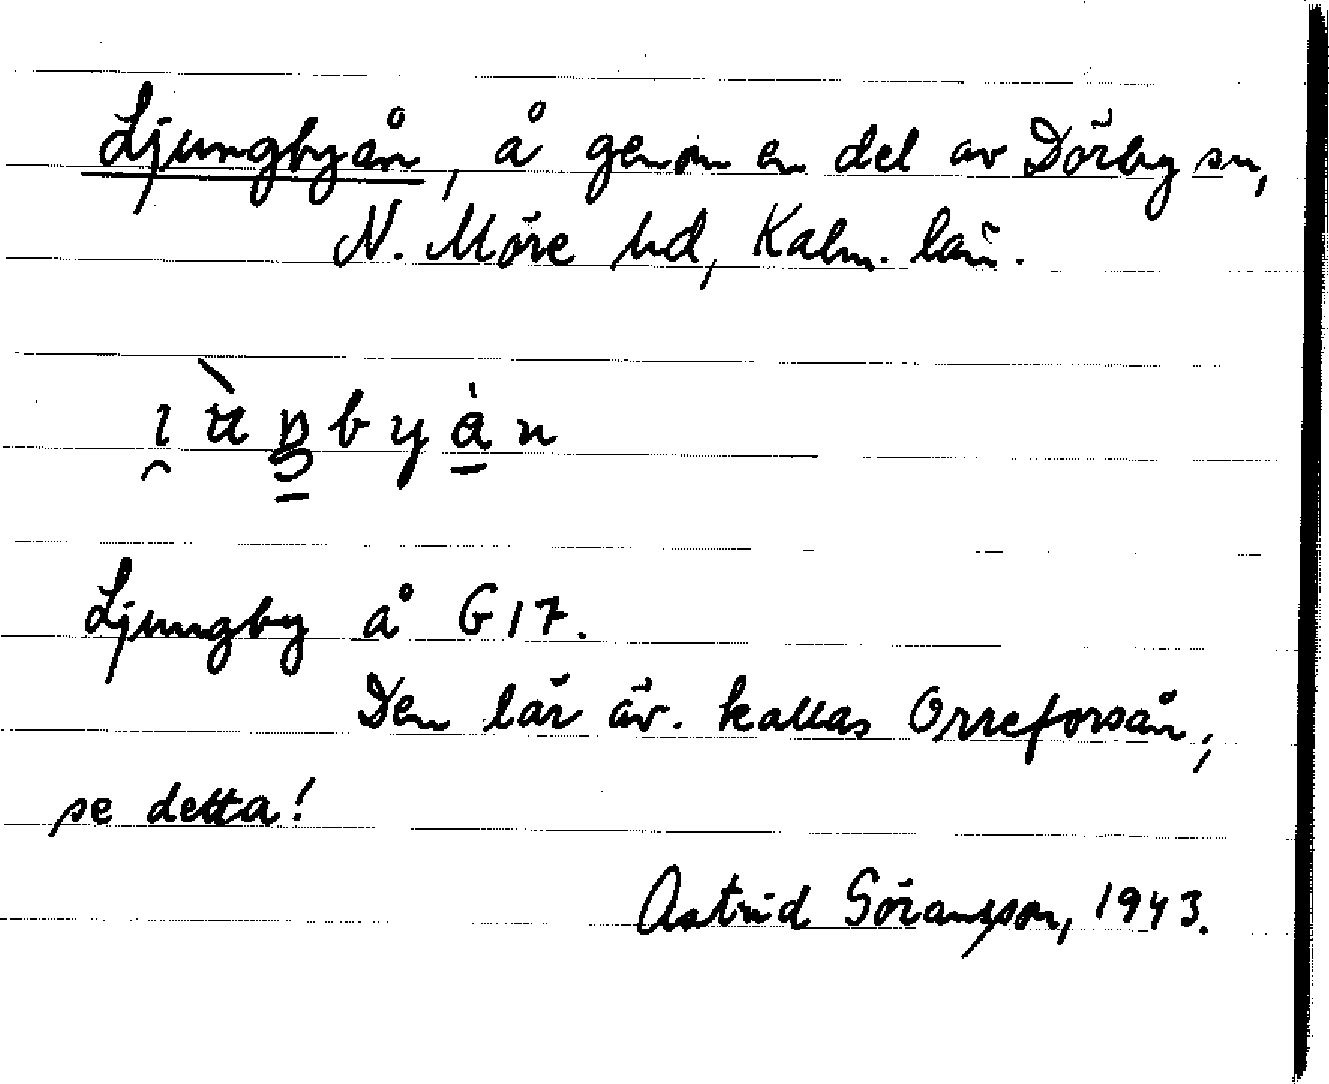 Ljungbyån, å genom en del av Dörby sn,
N. Möre hd, Kalm. län.
Ljungby å G17.
Den lär äv. kallas Orreforsån,
se detta!
Astrid Göransson, 1943.